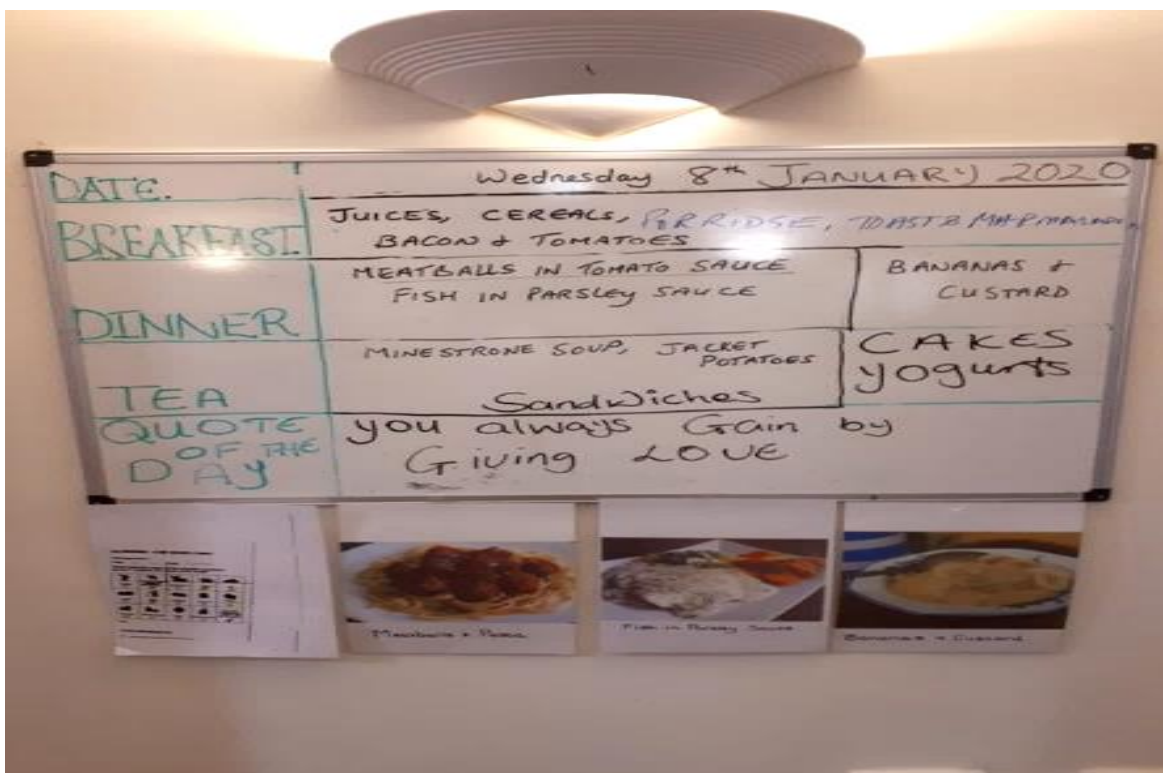 DATE.
Wednesday 8th JANUARY 2020
BREAKFAST
JUICES, CEREALS, PORRIDGE, TOAST &
BACON & TOMATOES
DINNER
MEATBALLS IN TOMATO SAUCE
FISH IN PARSLEY SAUCE
BANANAS &
CUSTARD
TEA
MINESTRONE SOUP, JACKET
POTATOES
Sandwiches
CAKES
yogurts
QUOTE
OF THE
DAY
you always Gain by
Giving LOVE
Meatballs & Pasta
Fish in Parsley Sauce
Bananas & Custard